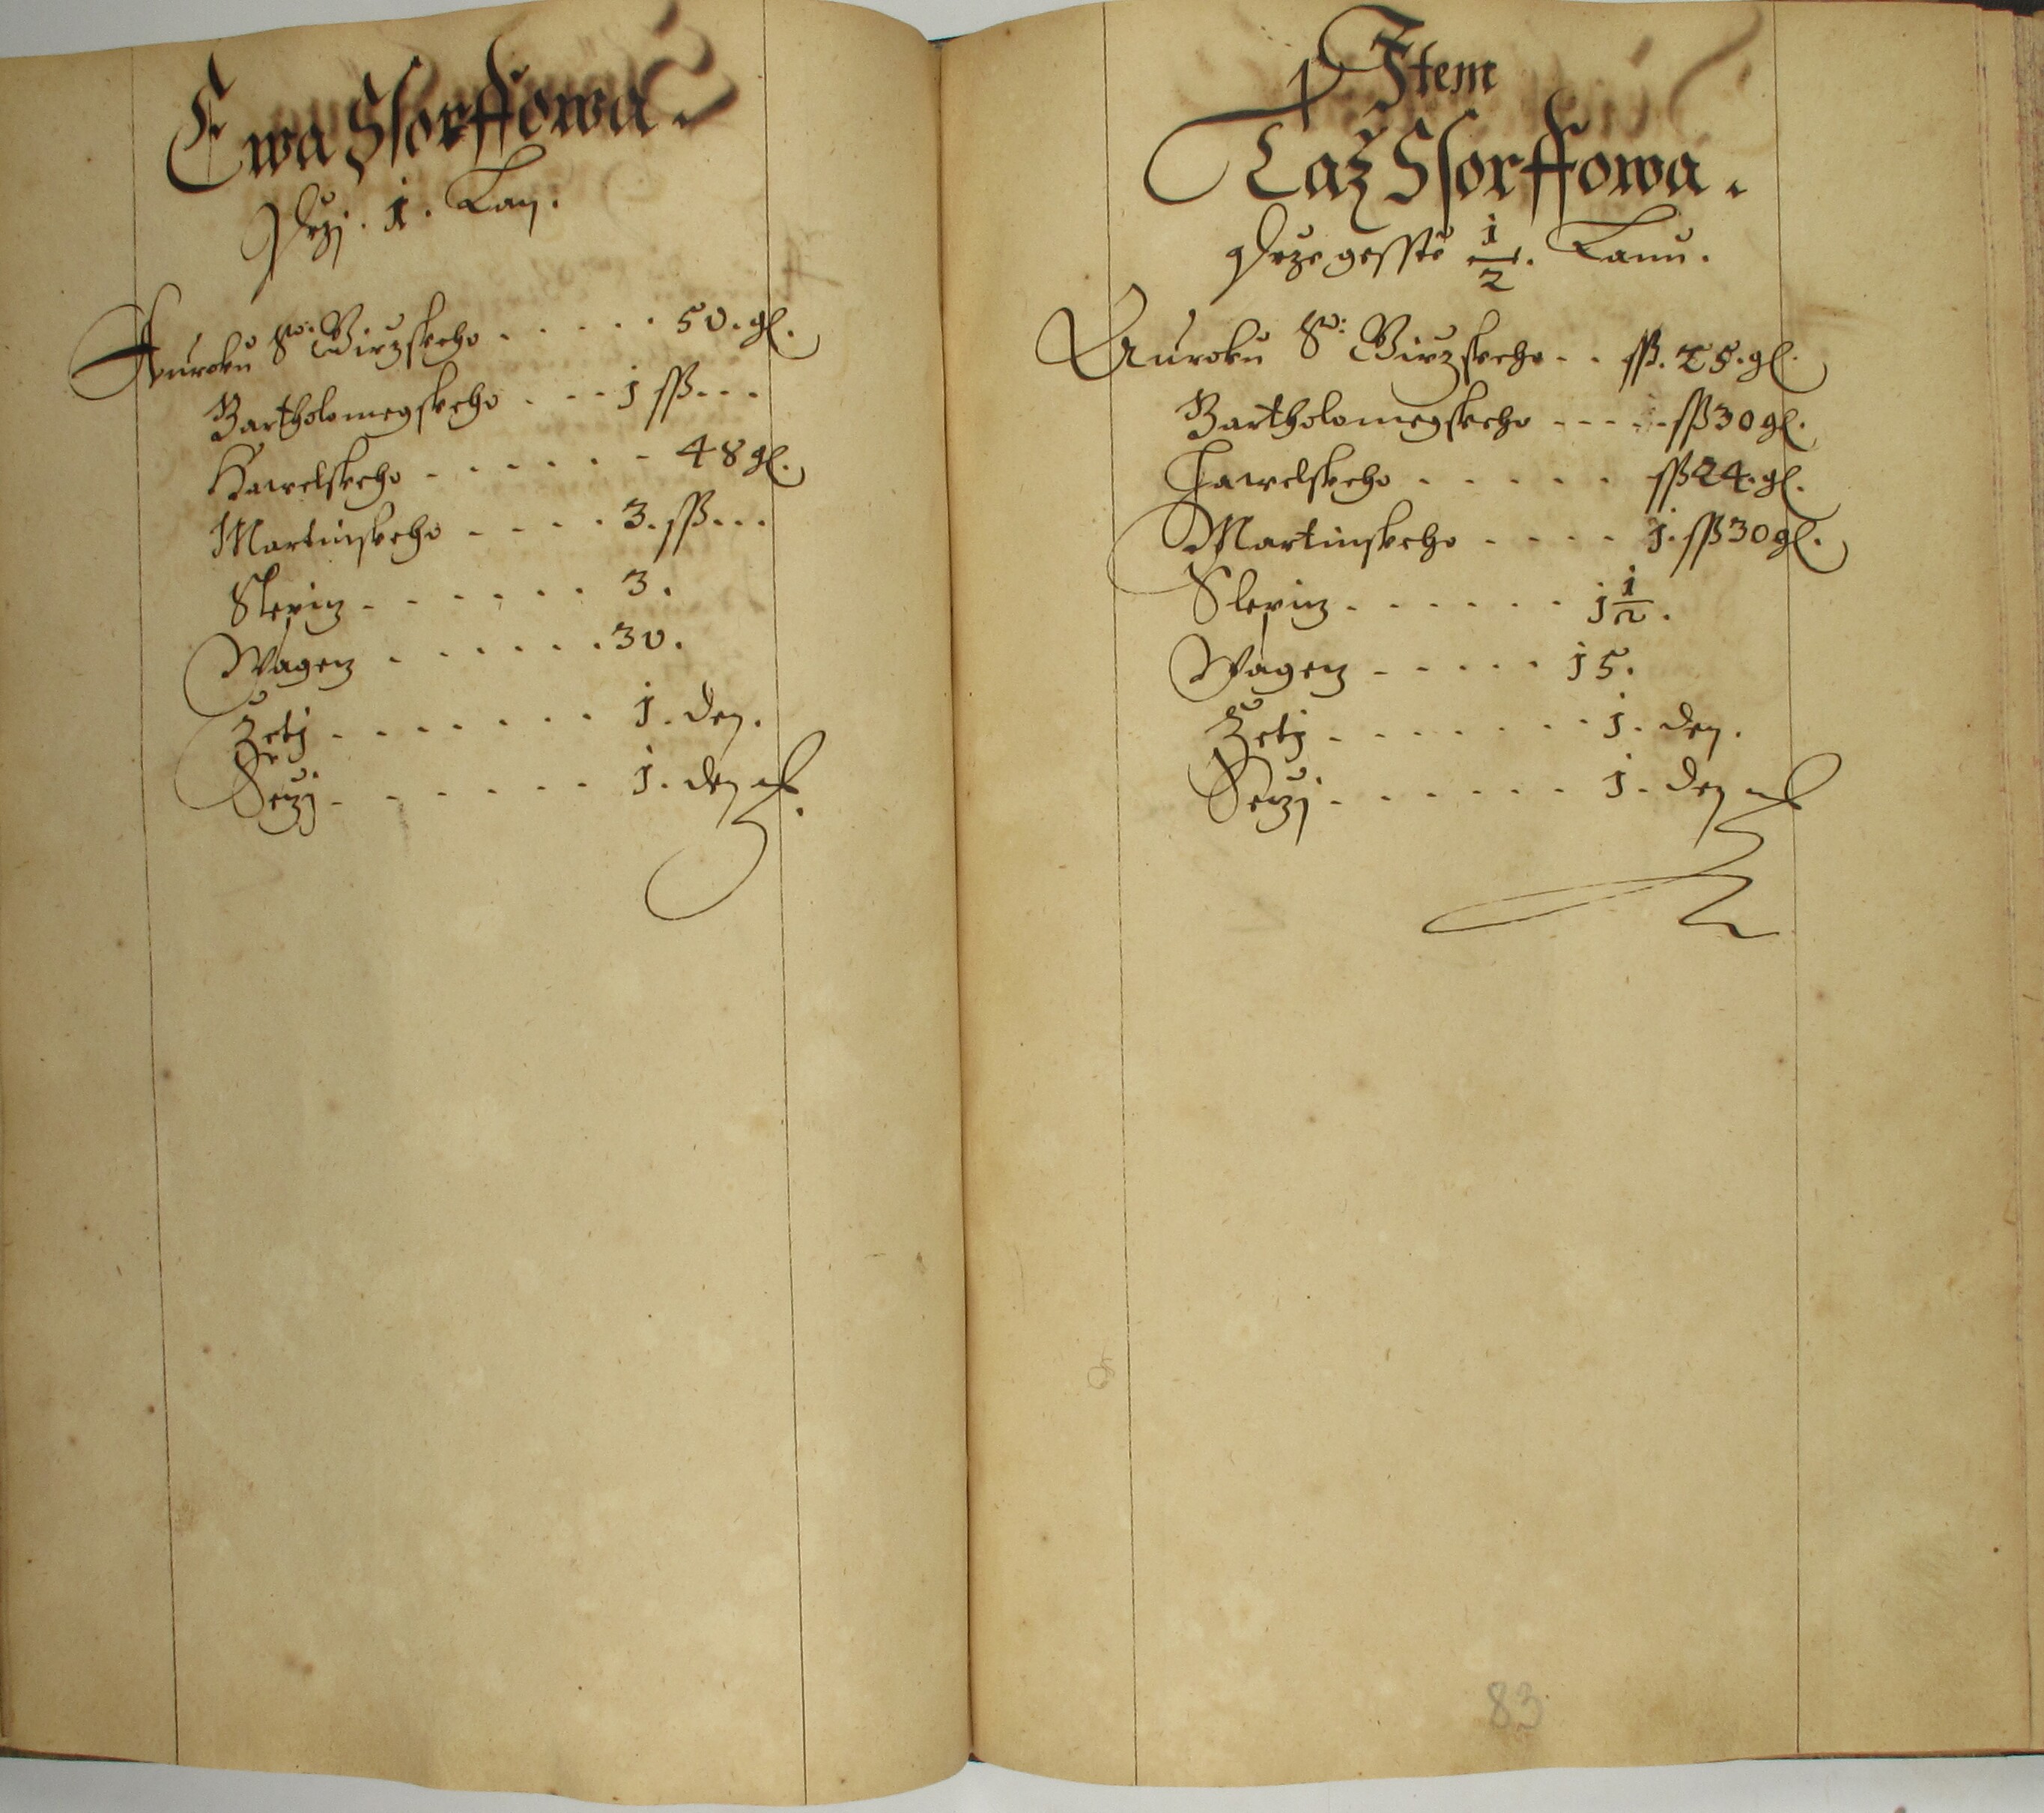 Ewa Ssorffowa.
Przi. 1. Lan:
Auroku Sw: Girzskeho . . . . . . 50. gl.
Bartholomegskeho . . . 1 ss. . .
Hawelskeho . . . . . . 48 gl.
Martinskeho . . . . 3. ss. . .
Slepicz . . . . . . 3.
Wagecz . . . . . . 30.
Zetij . . . . . . . 1. den.
Seczi . . . . . . 1. den
Item
Taz Ssorffowa.
Przegesste 1/2. Lanu.
Auroku Sw: Girzskeho . . ss. 25. gl.
Bartholomegskeho . . . . ss 30 gl.
Hawelskeho . . . . . ss 24. gl.
Martinskeho . . . . 1. ss 30 gl.
Slepicz . . . . . . 1 1/2.
Wagecz . . . . . 15.
Zetij . . . . . . . 1. den.
Seczi . . . . . . 1. den
83